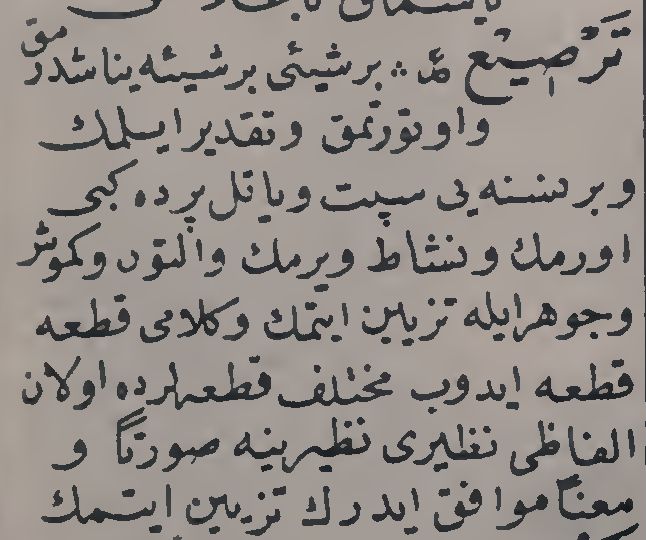 ترصیع مص ؞ برشیئی برشیئه یناشدرمق
واوتورتمق وتقدیر ایلمك
وبر نسنه یی سپت ویا تل پرده کبی
اورمك ونشاط ویرمك والتون وکموش
وجوهر ایله تزیین ایتمك وکلامی قطعه
قطعه ایدوب مختلف قطعهلرده اولان
الفاظی نظیری نظیرینه صورتاً و
معناً موافق ایدرك تزیین ایتمك